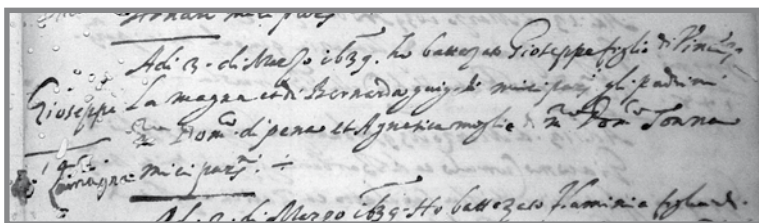 miei par.
Adi 3. di Marzo 1639. ho battezato Gioseppe figlio di Vincenzo
Gioseppe
La magna et di Bernarda giug. di miei par. gli padrini
Dom.co di pena et Agnetica moglie di Dom.co Tonna
Lamagna
miei par.
Adi 3. di Marzo 1639. Ho battezato Flaminia figlia di